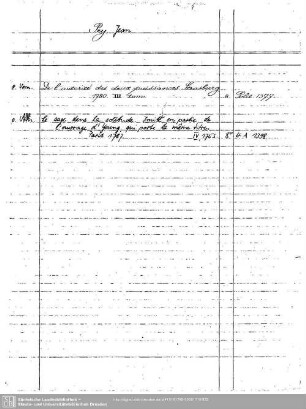 Pey, Jean
o. Vorn. De l'autorité des deux puissances. Strasbourg
1780. III Tomi. u Polit. 1377.
o. Vorn. Le sage dans la solitude. Imité en partie de
l'ouvrage d'Young, qui porte le même titre.
Paris 1787. IV 1763 8° H A 1298
Sächsische Landesbibliothek -
Staats- und Universitätsbibliothek Dresden